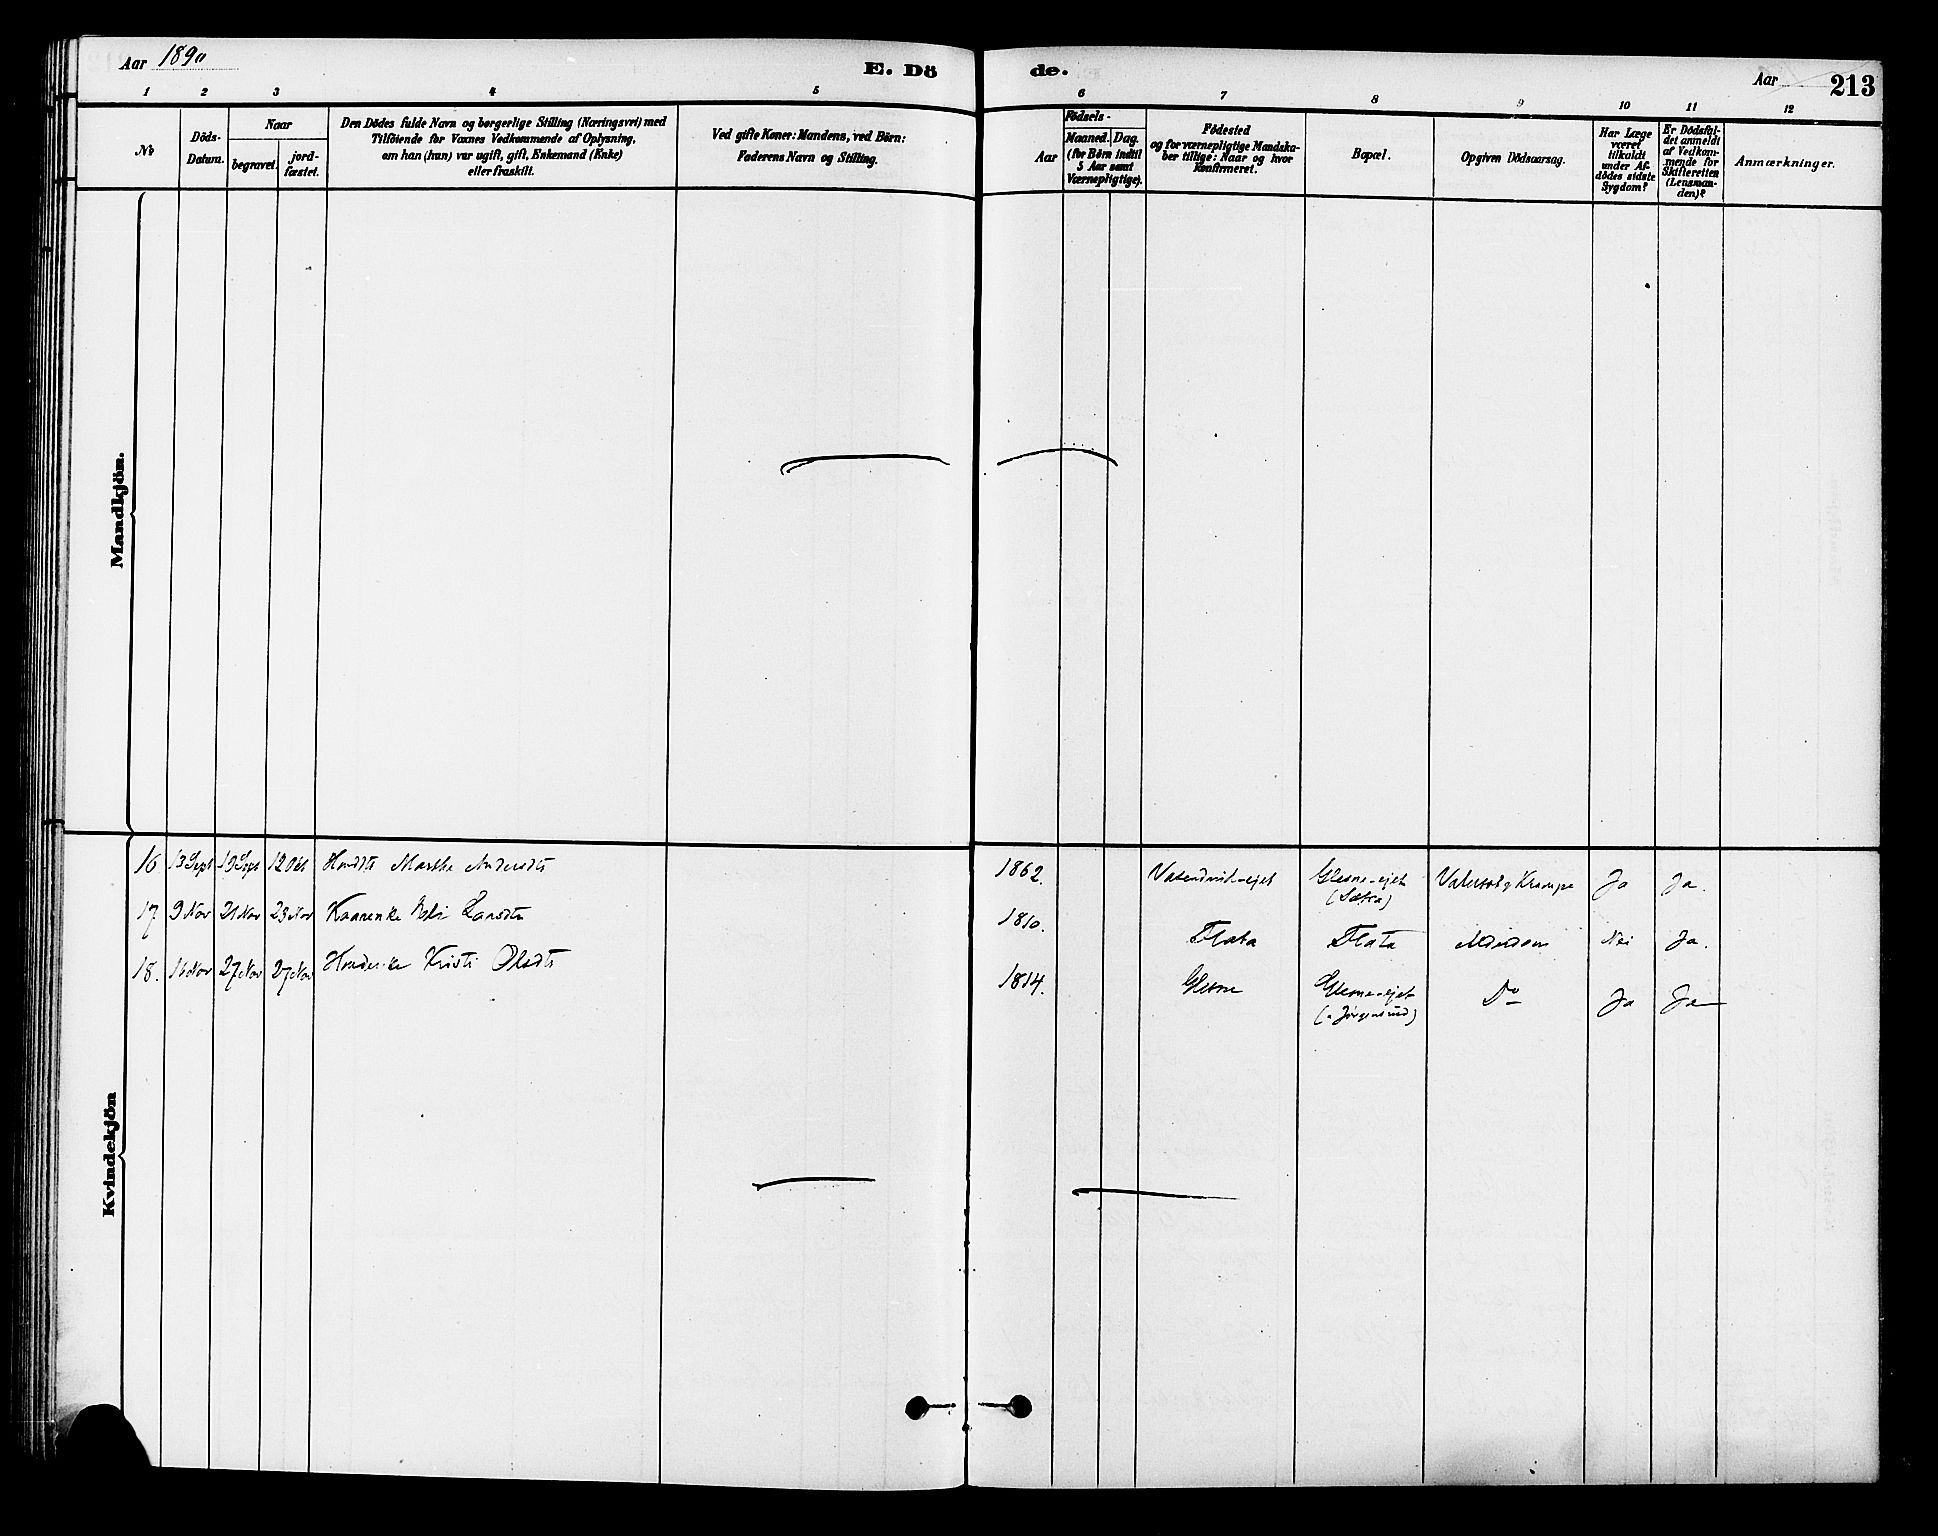 Aar 1890
E. Dö
de.
Aar
213
1 2 3 4 5 6 7 8 9 10 11 12
No
Döds-
Datum.
Naar
begravet.
jord-
fæstet.
Den Dödes fulde Navn og borgerlige Stilling (Næringsvei) med
Tilföiende for Voxnes Vedkommende af Oplysning,
om han (hun) var ugift, gift, Enkemand (Enke)
eller fraskilt.
Ved gifte Koner: Mandens, ved Börn:
Faderens Navn og Stilling.
Födsels-
Aar
Maaned. Dag.
(for Börn indtil
5 Aar samt
Værnepligtige).
Födested
og for værnepligtige Mandska-
ber tillige: Naar og hvor
Konfirmeret.
Bopæl.
Opgiven Dödsaarsag.
Har Læge
været
tilkaldt
under Af-
dödes sidste
Sygdom?
Er Dödsfal-
det anmeldt
af Vedkom-
mende for
Skifteretten
(Lensman-
den)?
Anmærkninger.
Mandkjön.
Kvindekjön
16 13 Sept 19 Sept 12 Okt Marthe Andersdtr 1862. Glesne-ejet Ja Ja.
17 9 Nov 21 Nov 23 Nov 1810. Flata Flata Nei Ja.
18. 16 Nov 27 Nov 27 Nov Kristi Olsdtr 1814. Glesne Glesne-ejet Do Ja Ja